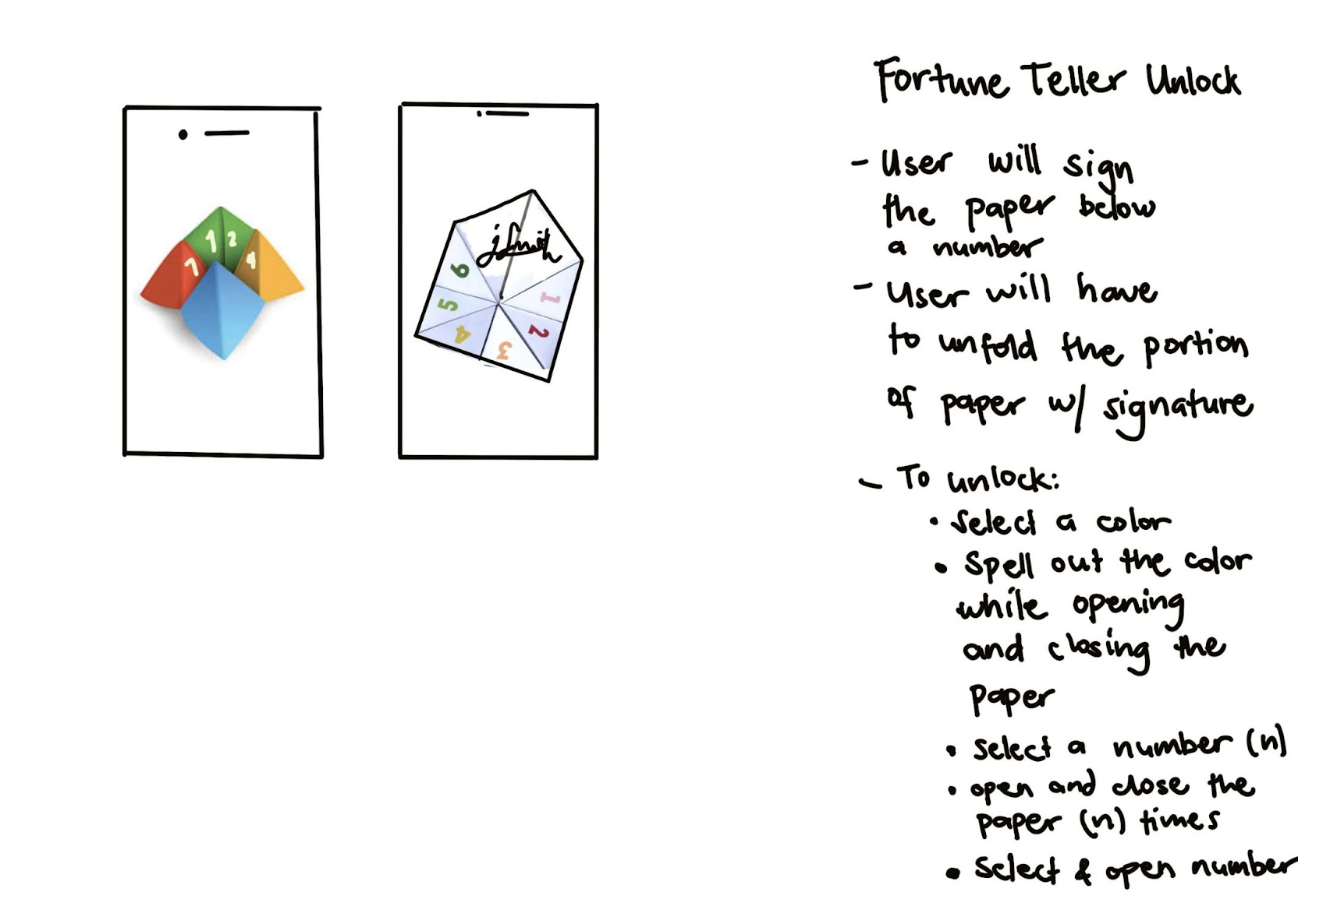 Fortune Teller Unlock
- User will sign
the paper below
a number
- User will have
to unfold the portion
of paper w/ signature
- To unlock:
• Select a color
• Spell out the color
while opening
and closing the
paper
• Select a number (n)
• open and close the
paper (n) times
• Select & open number
1 2
7 4
jSmith
6
1
5
2
4
3